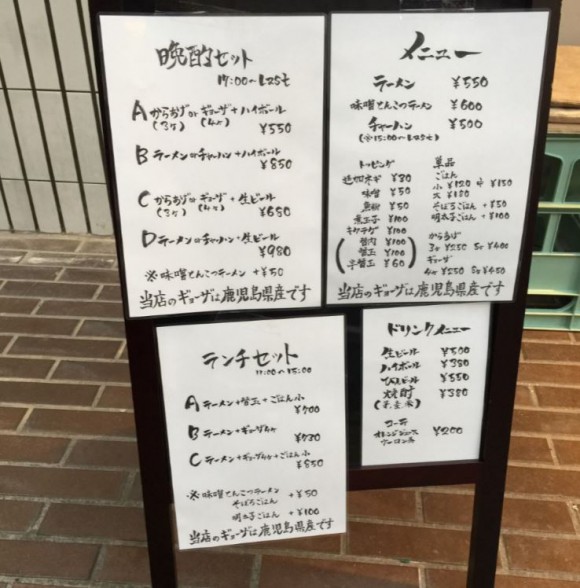 晩酌セット
17:00〜Last
A からあげorギョーザ+ハイボール
(3ヶ) (4ヶ)
¥550
B ラーメンorチャーハン+ハイボール
¥850
C からあげorギョーザ+生ビール
(3ヶ) (4ヶ)
¥680
D ラーメンorチャーハン+生ビール
¥980
※味噌とんこつラーメン +¥50
当店のギョーザは鹿児島県産です
メニュー
ラーメン ¥550
味噌とんこつラーメン ¥600
チャーハン ¥500
(※15:00〜Last)
トッピング
追加ネギ ¥80
味噌 ¥50
魚粉 ¥50
煮玉子 ¥100
キクラゲ ¥100
替肉 ¥100
替玉 ¥100
半替玉 ¥60
単品
ごはん
小 ¥120 中 ¥150
大 ¥180
そぼろごはん +¥50
明太子ごはん +¥100
からあげ
3ヶ ¥250 5ヶ ¥400
ギョーザ
4ヶ ¥250 8ヶ ¥450
当店のギョーザは鹿児島県産です
ランチセット
11:00〜15:00
A ラーメン+替玉+ごはん小
¥700
B ラーメン+ギョーザ4ヶ
¥730
C ラーメン+ギョーザ4ヶ+ごはん小
¥850
※味噌とんこつラーメン +¥50
そぼろごはん
明太子ごはん +¥100
当店のギョーザは鹿児島県産です
ドリンクメニュー
生ビール ¥500
ハイボール ¥380
びんビール ¥550
焼酎 ¥380
(芋、麦、米)
コーラ
オレンジジュース ¥200
ウーロン茶